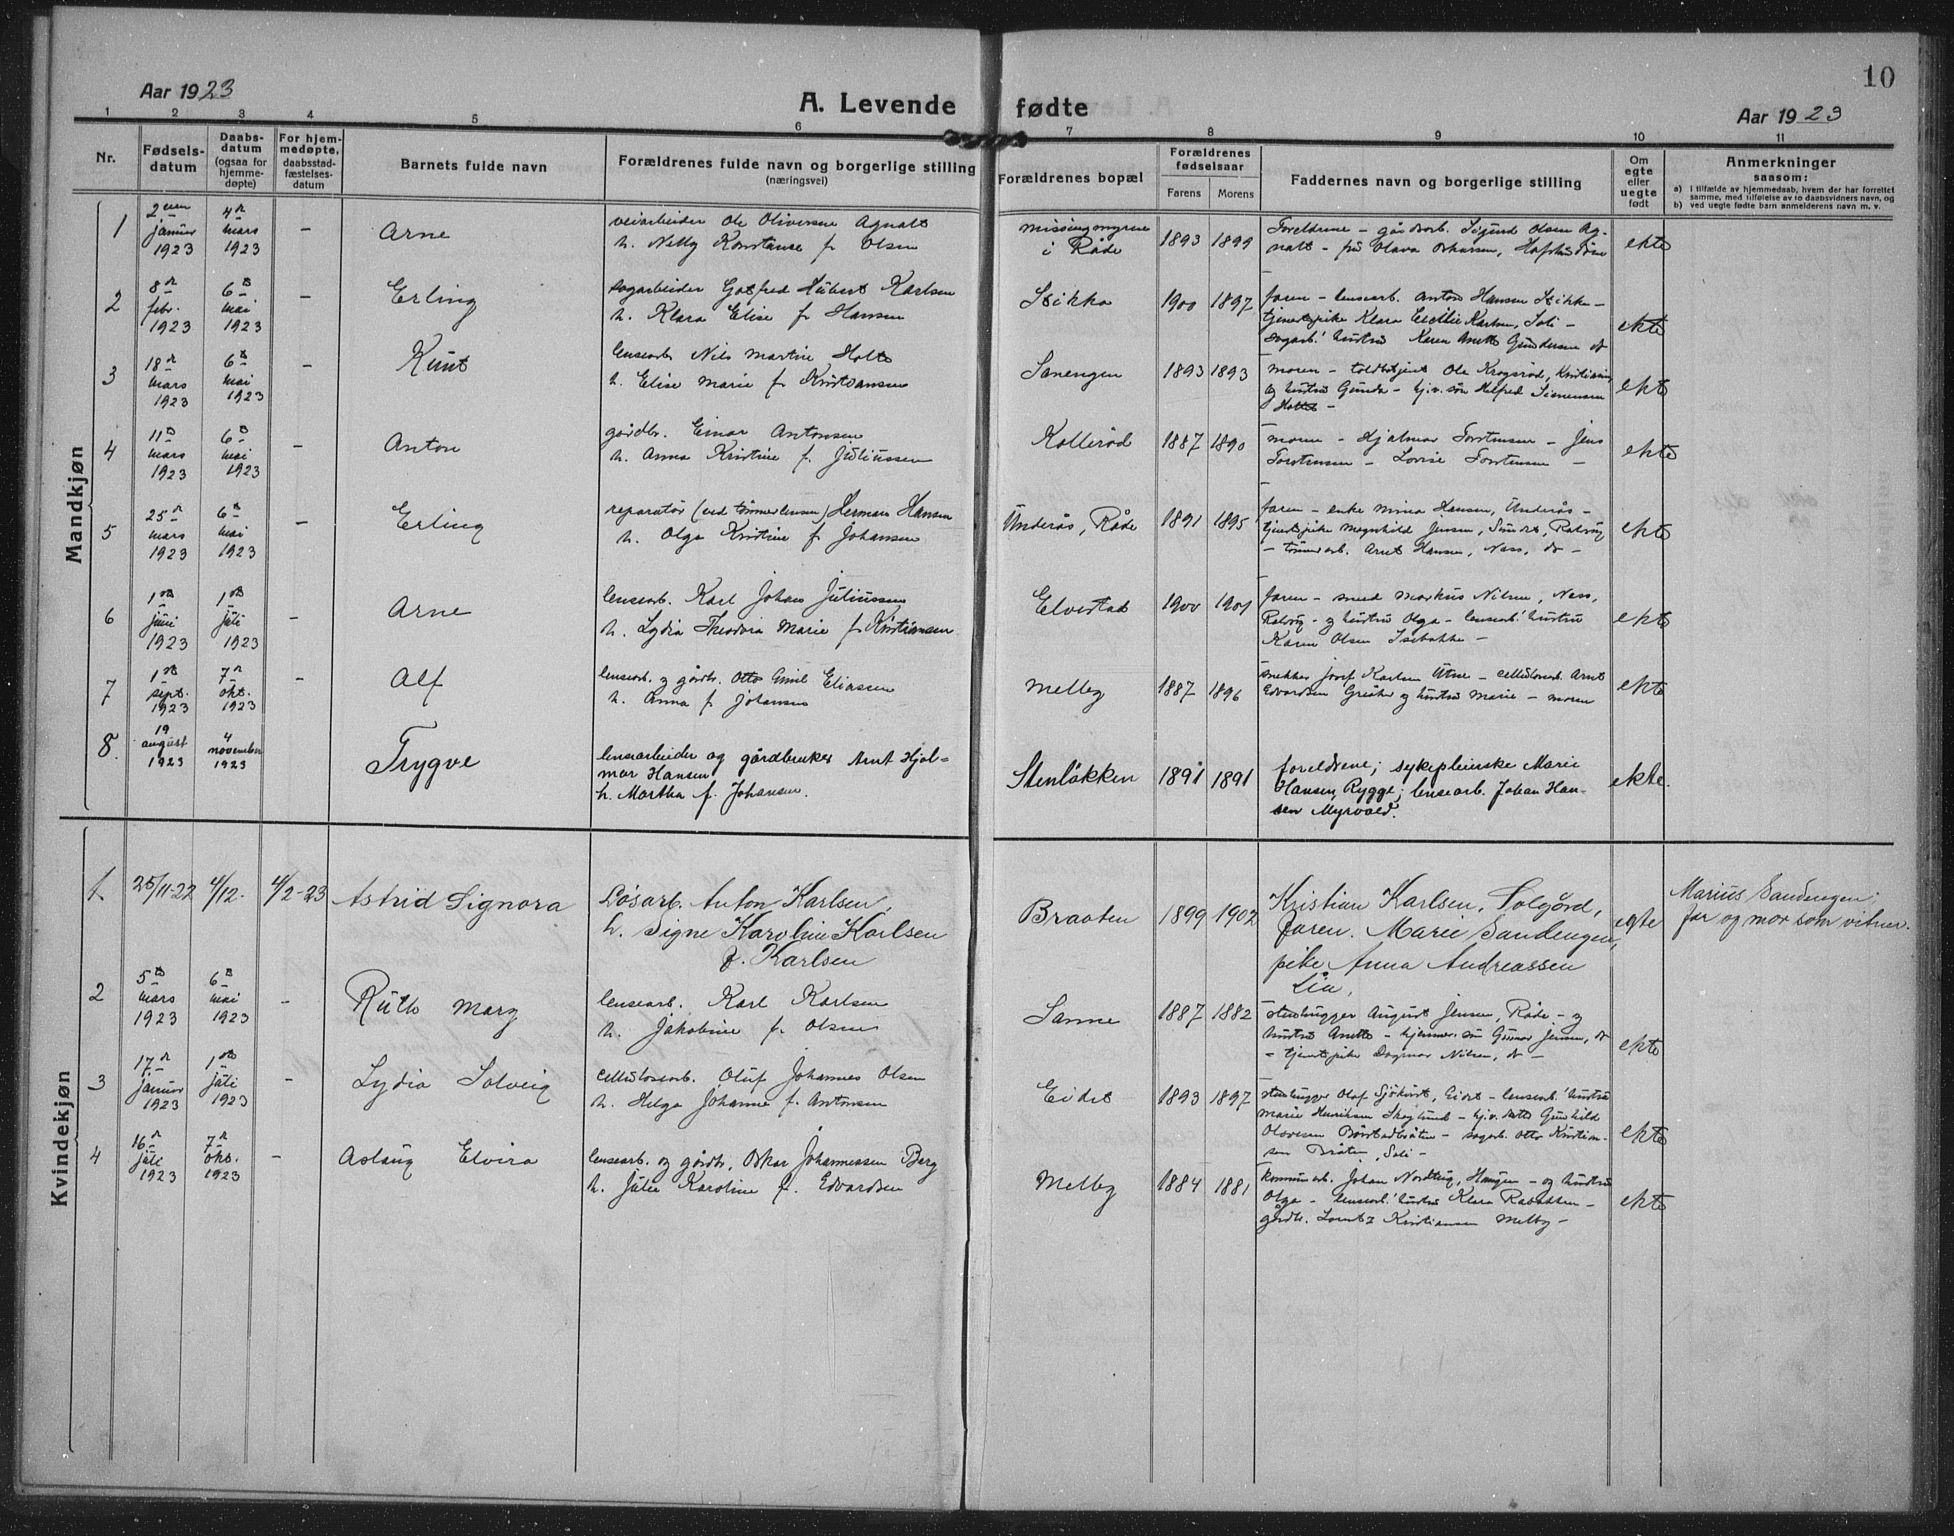 10
Aar 1923
A. Levende fødte
Aar 1923
1 2 3 4 5 6 7 8 9 10 11
Nr.
Fødselsdatum
Daabsdatum (ogsaa for hjemmedøpte)
For hjemmedøpte, daabsstadfæstelsesdatum
Barnets fulde navn
Forældrenes fulde navn og borgerlige stilling (næringsvei)
Forældrenes bopæl
Forældrenes fødselsaar
Farens Morens
Faddernes navn og borgerlige stilling
Om egte eller uegte født
Anmerkninger saasom:
a) I tilfælde av hjemmedaab, hvem der har forrettet samme, med tilføielse av to daabsvidners navn, og
b) ved uegte fødte barn anmelderens navn m. v.
Mandkjøn
1 2den januar 1923 4de mars 1923 – Arne
veiarbeider Ole Oliversen Agnalt
h. Nelly Konstanse f. Olsen
missingmyrene i Råde 1893 1899
Foreldrene – gårdsarb. Sigurd Olsen Agnalt – frk Olava Oskarsen,
ekte
2 8de febr. 1923 6te mai 1923 – Erling
sagarbeider Gotfred Hubert Karlsen
h. Klara Elise f. Hansen
Stikka 1900 1897
faren – lensearb. Anton Hansen Stikka –
tjenestepike Klara Cecilie Karlsen, Soli –
sagarb.' hustru Karen Anette Gundersen ds
ekte
3 18de mars 1923 6te mai 1923 – Knut
lensearb. Nils Martin Holte
h. Elise Marie f. Kristiansen
Sanengen 1893 1893
moren – toldbetjent Ole Krogsrød, Kristiania,
og hustru Gunda – hj.v. søn Halfred Simensen
Holte –
ekte
4 11te mars 1923 6te mai 1923 – Anton
gårdbr. Einar Antonsen
h. Anna Kristine f. Juliussen
Kollerød 1887 1890
moren – Hjalmar Torstensen – Jens
Torstensen – Lovise Torstensen –
ekte
5 25de mars 1923 6te mai 1923 – Erling
reparatør (ved tømmerlensen) Herman Hansen
h. Olga Kristine f. Johansen
Underås, Råde 1891 1895
faren – enke Mina Hansen, Underås –
tjenestepike Magnhild Jensen, Sundet, Rolvsøy
– tømmerarb. Arnt Hansen, Ness, ds –
ekte
6 1ste juni 1923 1ste juli 1923 – Arne
lensearb. Karl Johan Juliussen
h. Lydia Theodora Marie f. Kristiansen
Elvestad 1900 1901
faren – smed Markus Nilsen, Ness,
Rolvsøy – og hustru Olga – lensearb.' hustru
Karen Olsen Isebakke –
ekte
7 1ste sept. 1923 7de okt. 1923 – Alf
lensearb. og gårdbr. Otto Emil Eliassen
h. Anna f. Johansen
Melby 1887 1896
snekker Josef Karlsen Utne – cellulosearb. Arnt
Edvardsen Greåker og hustru Marie – moren
ekte
8. 19 august 1923 4 november 1923 Trygve
lensearbeider og gårdbruker Arnt Hjal=
mar Hansen
h. Martha f. Johansen.
Stenløkken 1891 1891
foreldrene; sykepleierske Marie
Hansen, Rygge; lensearb. Johan Han-
sen Myrvold.
ekte.
Kvindekjøn
1. 25/11-22 4/12. 4/2-23 Astrid Signora
Løsarb. Anton Karlsen,
h. Signe Karoline Karlsen
f. Karlsen
Braaten 1899 1902
Kristian Karlsen, Solgård,
faren. Marie Sandengen,
pike Anna Andreassen
Lia,
egte
Marius Sandengen,
far og mor som vitner.
2 5te mars 1923 6te mai 1923 – Ruth Mary
lensearb. Karl Karlsen
h. Jakobine f. Olsen
Sanne 1887 1882
stenhugger August Jensen, Råde – og
hustru Anette – hjemmev. søn Gunnar Jensen, ds
– tjenestepike Dagmar Nilsen, ds –
ekte
3 17de januar 1923 1ste juli 1923 – Lydia Solveig
cellulosearb. Oluf Johannes Olsen
h. Helga Johanne f. Antonsen
Eidet 1893 1897
stenhugger Olaf Sjøkvist, Eidet – lensearb.' hustru
Marie Henriksen Skoglund – hj.v. datter Gunhild
Olavesen Børstadbråten – sagarb. Otto Kristian-
sen Bråten, Soli –
ekte
4 16de juli 1923 7de okt. 1923 – Aslaug Elvira
lensearb. og gårdbr. Oskar Johannessen Berg
h. Julie Karoline f. Edvardsen
Melby 1884 1881
kommunearb. Johan Nordhug, Haugen – og hustru
Olga – lensearb.' hustru Klara –
gårdbr. Lorentz Kristiansen Melby –
ekte